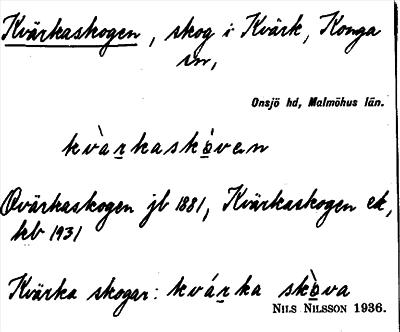 Kvärkaskogen, skog i Kvärk, Konga
sn,
Onsjö hd, Malmöhus län.
kvàrkaskòven
Qvärkaskogen jb 1881, Kvärkaskogen ek,
kb 1931
Kvärka skogar: kvárka skòva
NILS NILSSON 1936.